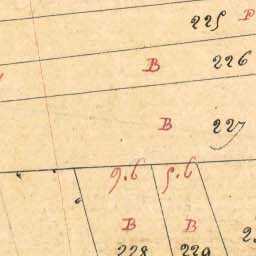 225 P
B 226
B 227
9.6 5.6
B B
228 229